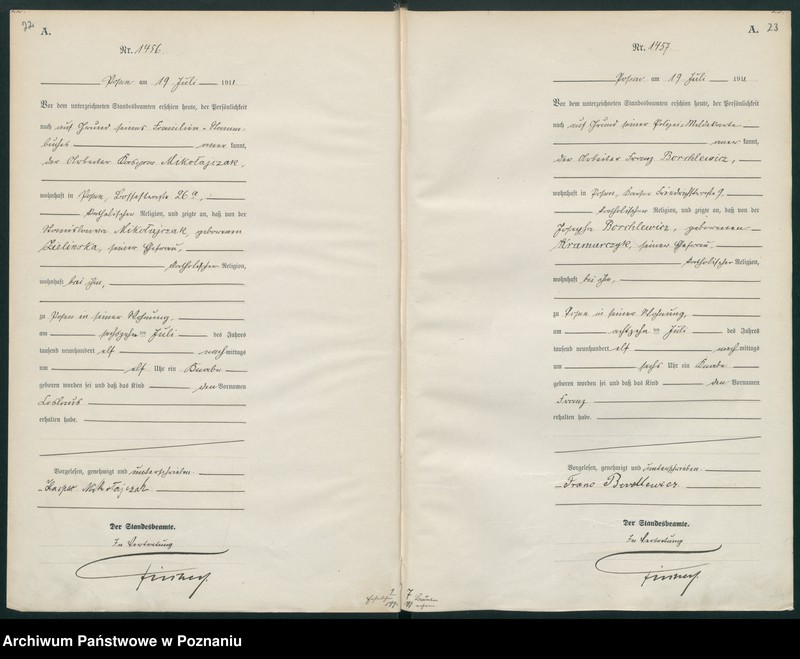 22
A.
Nr. 1456
Posen am 19 Juli 1911
Vor dem unterzeichneten Standesbeamten erschien heute, der Persönlichkeit
nach auf Grund seines Familien-Stamm-
buches kannt,
der Arbeiter Mikołajczak,
wohnhaft in Posen, 26a,
katholischer Religion, und zeigte an, daß von der
Stanisława Mikołajczak, geborenen
Zielinska, seiner Ehefrau,
katholischer Religion,
wohnhaft bei ihm,
zu Posen in seiner Wohnung,
am sechszehn ten Juli des Jahres
tausend neunhundert elf nachmittags
um elf Uhr ein Knabe
geboren worden sei und daß das Kind den Vornamen
Ceslaus
erhalten habe.
Vorgelesen, genehmigt und unterschrieben.
Kasper Mikołajczak
Der Standesbeamte.
In Vertretung
A. 23
Nr. 1457
Posen am 19 Juli 1911
Vor dem unterzeichneten Standesbeamten erschien heute, der Persönlichkeit
nach auf Grund seiner Polizei-Meldekarte
kannt,
der Arbeiter Franz Borchlewicz,
wohnhaft in Posen, 9,
katholischer Religion, und zeigte an, daß von der
Josepha Borchlewicz, geborenen
Kramarczyk, seiner Ehefrau,
katholischer Religion,
wohnhaft bei ihm,
zu Posen in seiner Wohnung,
am achtzehn ten Juli des Jahres
tausend neunhundert elf nachmittags
um sechs Uhr ein Knabe
geboren worden sei und daß das Kind den Vornamen
Franz
erhalten habe.
Vorgelesen, genehmigt und unterschrieben.
Franc
Der Standesbeamte.
In Vertretung
Archiwum Państwowe w Poznaniu